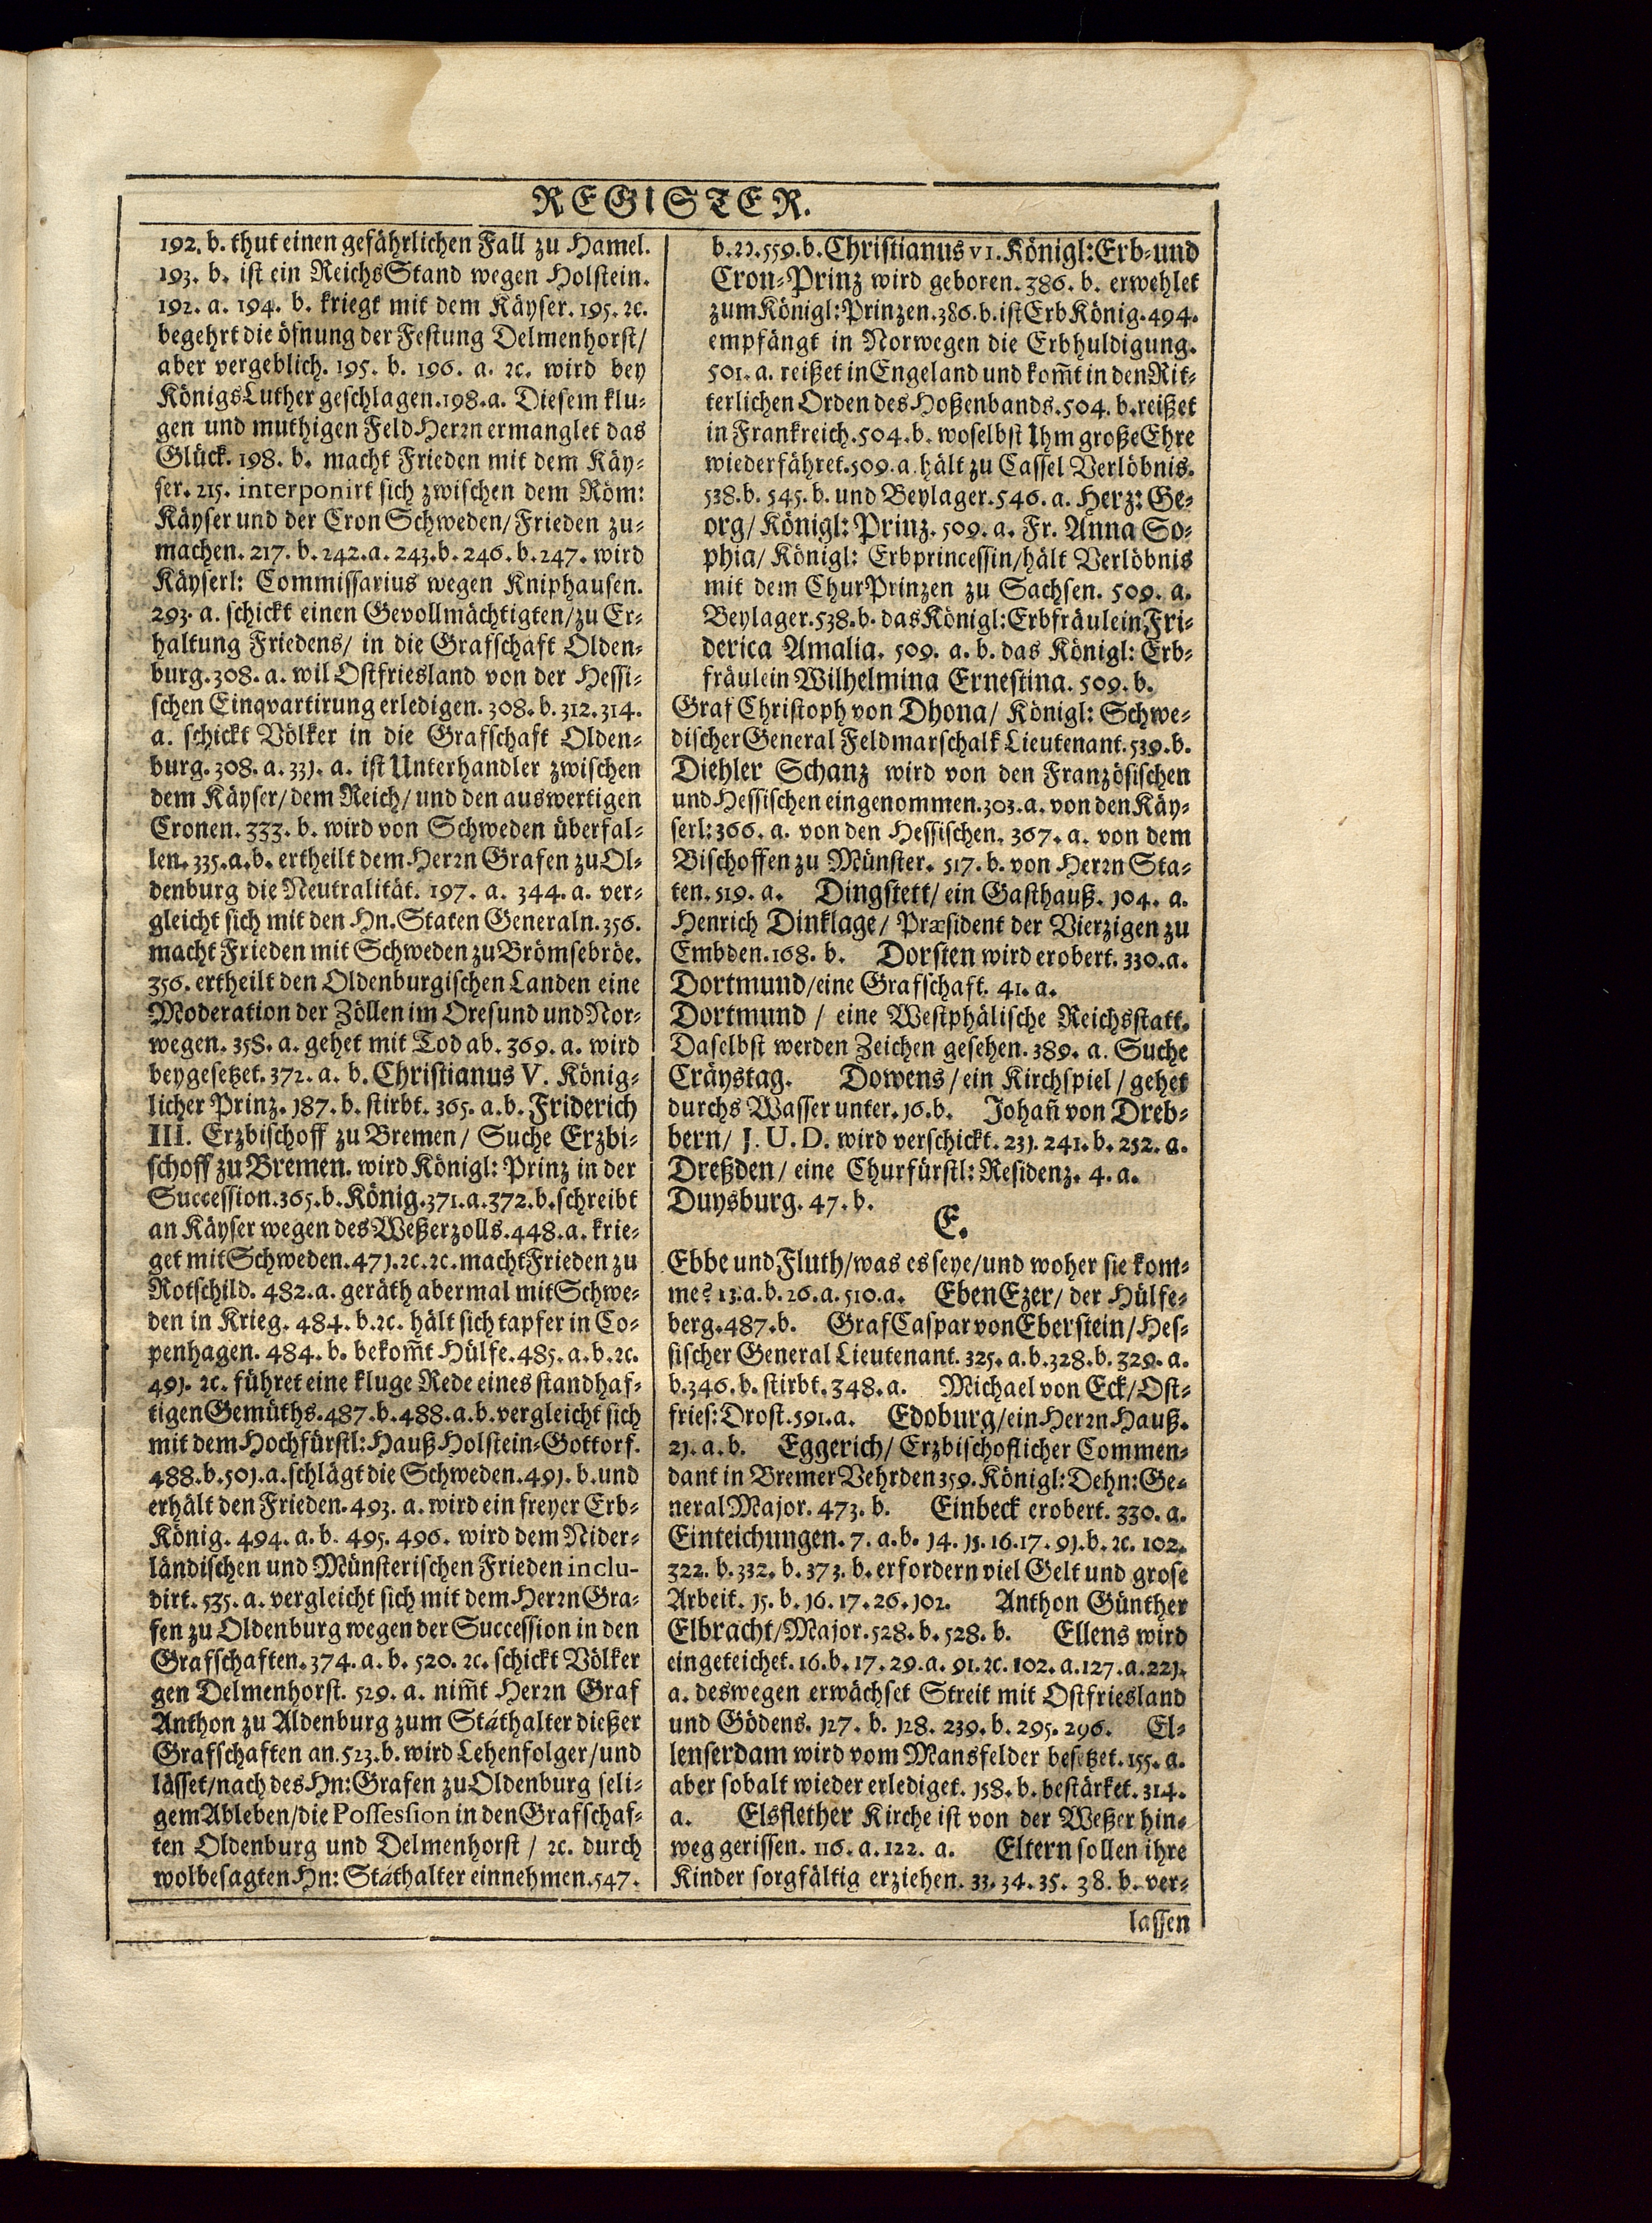 REGISTER.
192. b. thut einen gefährlichen Fall zu Hamel.
193. b. ist ein ReichsStand wegen Holstein.
192. a. 194. b. kriegt mit dem Käyser. 195. ꝛc.
begehrt die öfnung der Festung Delmenhorst/
aber vergeblich. 195. b. 196. a. ꝛc. wird bey
KönigsLuther geschlagen. 198. a. Diesem klu-
gen und muthigen FeldHerrn ermanglet das
Glück. 198. b. macht Frieden mit dem Käy-
ser. 215. interponirt sich zwischen dem Röm:
Käyser und der Cron Schweden/ Frieden zu-
machen. 217. b. 242. a. 243. b. 246. b. 247. wird
Käyserl: Commissarius wegen Kniphausen.
293. a. schickt einen Gevollmächtigten/ zu Er-
haltung Friedens/ in die Grafschaft Olden-
burg. 308. a. wil Ostfriesland von der Hessi-
schen Einqvartirung erledigen. 308. b. 312. 314.
a. schickt Völker in die Grafschaft Olden-
burg. 308. a. 331. a. ist Unterhandler zwischen
dem Käyser/ dem Reich/ und den auswertigen
Cronen. 333. b. wird von Schweden überfal-
len. 335. a. b. ertheilt dem Herrn Grafen zu Ol-
denburg die Neutralität. 197. a. 344. a. ver-
gleicht sich mit den Hn. Staten Generaln. 356.
macht Frieden mit Schweden zu Brömsebröe.
356. ertheilt den Oldenburgischen Landen eine
Moderation der Zöllen im Oresund und Nor-
wegen. 358. a. gehet mit Tod ab. 369. a. wird
beygesetzet. 372. a. b. Christianus V. König-
licher Prinz. 187. b. stirbt. 365. a. b. Friderich
III. Erzbischoff zu Bremen/ Suche Erzbi-
schoff zu Bremen. wird Königl: Prinz in der
Succession. 365. b. König. 371. a. 372. b. schreibt
an Käyser wegen des Weßerzolls. 448. a. krie-
get mit Schweden. 471. ꝛc. ꝛc. macht Frieden zu
Rotschild. 482. a. geräth abermal mit Schwe-
den in Krieg. 484. b. ꝛc. hält sich tapfer in Co-
penhagen. 484. b. bekom̄t Hülfe. 485. a. b. ꝛc.
491. ꝛc. führet eine kluge Rede eines standhaf-
tigen Gemüths. 487. b. 488. a. b. vergleicht sich
mit dem Hochfürstl: Hauß Holstein-Gottorf.
488. b. 501. a. schlägt die Schweden. 491. b. und
erhält den Frieden. 493. a. wird ein freyer Erb-
König. 494. a. b. 495. 496. wird dem Nider-
ländischen und Münsterischen Frieden inclu-
dirt. 535. a. vergleicht sich mit dem Herrn Gra-
fen zu Oldenburg wegen der Succession in den
Grafschaften. 374. a. b. 520. ꝛc. schickt Völker
gen Delmenhorst. 529. a. nim̄t Herrn Graf
Anthon zu Aldenburg zum Státhalter dießer
Grafschaften an. 523. b. wird Lehenfolger/ und
lässet/ nach des Hn: Grafen zu Oldenburg seli-
gem Ableben/ die Possession in den Grafschaf-
ten Oldenburg und Delmenhorst / ꝛc. durch
wolbesagten Hn: Státhalter einnehmen. 547.
b. 22. 559. b. Christianus VI. Königl: Erb- und
Cron-Prinz wird geboren. 386. b. erwehlet
zum Königl: Prinzen. 386. b. ist Erb König. 494.
empfängt in Norwegen die Erbhuldigung.
501. a. reißet in Engeland und kom̄t in den Rit-
terlichen Orden des Hoßenbands. 504. b. reißet
in Frankreich. 504. b. woselbst Ihm große Ehre
wiederfähret. 509. a. hält zu Cassel Verlöbnis.
538. b. 545. b. und Beylager. 546. a. Herz: Ge-
org/ Königl: Prinz. 509. a. Fr. Anna So-
phia/ Königl: Erbprincessin/ hält Verlöbnis
mit dem ChurPrinzen zu Sachsen. 509. a.
Beylager. 538. b. das Königl: Erbfräulein Fri-
derica Amalia. 509. a. b. das Königl: Erb-
fräulein Wilhelmina Ernestina. 509. b.
Graf Christoph von Dhona/ Königl: Schwe-
discher General Feldmarschalk Lieutenant. 539. b.
Diehler Schanz wird von den Französischen
und Hessischen eingenommen. 303. a. von den Käy-
serl: 366. a. von den Hessischen. 367. a. von dem
Bischoffen zu Münster. 517. b. von Herrn Sta-
ten. 519. a. Dingstett/ ein Gasthauß. 104. a.
Henrich Dinklage/ Præsident der Vierzigen zu
Embden. 168. b. Dorsten wird erobert. 330. a.
Dortmund/ eine Grafschaft. 41. a.
Dortmund / eine Westphälische Reichsstatt.
Daselbst werden Zeichen gesehen. 389. a. Suche
Cräystag. Dowens / ein Kirchspiel / gehet
durchs Wasser unter. 16. b. Johan̄ von Dreb-
bern/ J. U. D. wird verschickt. 231. 241. b. 252. a.
Dreßden / eine Churfürstl: Residenz. 4. a.
Duysburg. 47. b.
E.
Ebbe und Fluth/ was es seye/ und woher sie kom-
me? 13. a. b. 26. a. 510. a. EbenEzer/ der Hülfe-
berg. 487. b. Graf Caspar von Eberstein/ Hes-
sischer General Lieutenant. 325. a. b. 328. b. 329. a.
b. 346. b. stirbt. 348. a. Michael von Eck/ Ost-
fries: Drost. 591. a. Edoburg/ ein Herrn Hauß.
21. a. b. Eggerich/ Erzbischoflicher Commen-
dant in Bremer Vehrden 359. Königl: Dehn: Ge-
neral Major. 473. b. Einbeck erobert. 330. a.
Einteichungen. 7. a. b. 14. 15. 16. 17. 91. b. ꝛc. 102.
322. b. 332. b. 373. b. erfordern viel Gelt und grose
Arbeit. 15. b. 16. 17. 26. 102. Anthon Günther
Elbracht/ Major. 528. b. 528. b. Ellens wird
eingeteichet. 16. b. 17. 29. a. 91. ꝛc. 102. a. 127. a. 221.
a. deswegen erwächset Streit mit Ostfriesland
und Gödens. 127. b. 128. 239. b. 295. 296. El-
lenserdam wird vom Mansfelder besetzet. 155. a.
aber sobalt wieder erlediget. 158. b. bestärket. 314.
a. Elsflether Kirche ist von der Weßer hin-
weg gerissen. 116. a. 122. a. Eltern sollen ihre
Kinder sorgfältig erziehen. 33. 34. 35. 38. b. ver-
lassen